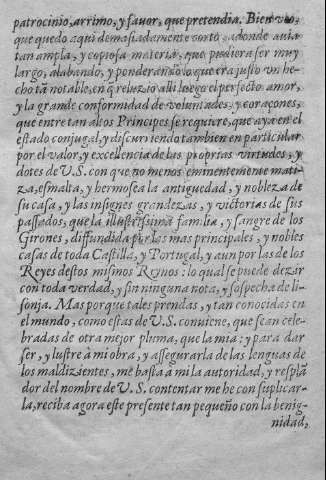 patrocinio, arrimo, y fauor, que pretendia. Bien veo,
que quedo aqui demasiadamente corto, adonde auia
tan ampla, y copiosa materia, que pudiera ser muy
largo, alabando, y ponderando lo que era justo vn he-
cho tã notable, en q̃ reluzio alli luego el perfecto amor,
y la grande conformidad de voluntades, y coraçones,
que entre tan altos Principes se requiere, que aya en el
estado conjugal, y discurriendo tambien en particular
por el valor, y excellencia de las proprias virtudes, y
dotes de V.S. con que no menos eminentemente mati-
za, esmalta, y hermosea la antiguedad, y nobleza de
su casa, y las insignes grandezas, y victorias de sus
passados, que la illustrissima familia, y sangre de los
Girones, diffundida por las mas principales, y nobles
casas de toda Castilla, y Portugal, y aun por las de los
Reyes destos mismos Reynos: lo qual se puede dezir
con toda verdad, y sin ninguna nota, y sospecha de li-
sonja. Mas porque tales prendas, y tan conocidas en
el mundo, como estas de V.S. conuiene, que sean cele-
bradas de otra mejor pluma, que la mia; y para dar
ser, y lustre à mi obra, y assegurarla de las lenguas de
los maldizientes, me basta à mi la autoridad, y resplã
dor del nombre de V.S. contentar me he con suplicar-
la, reciba agora este presente tan pequeño con la benig-
nidad,